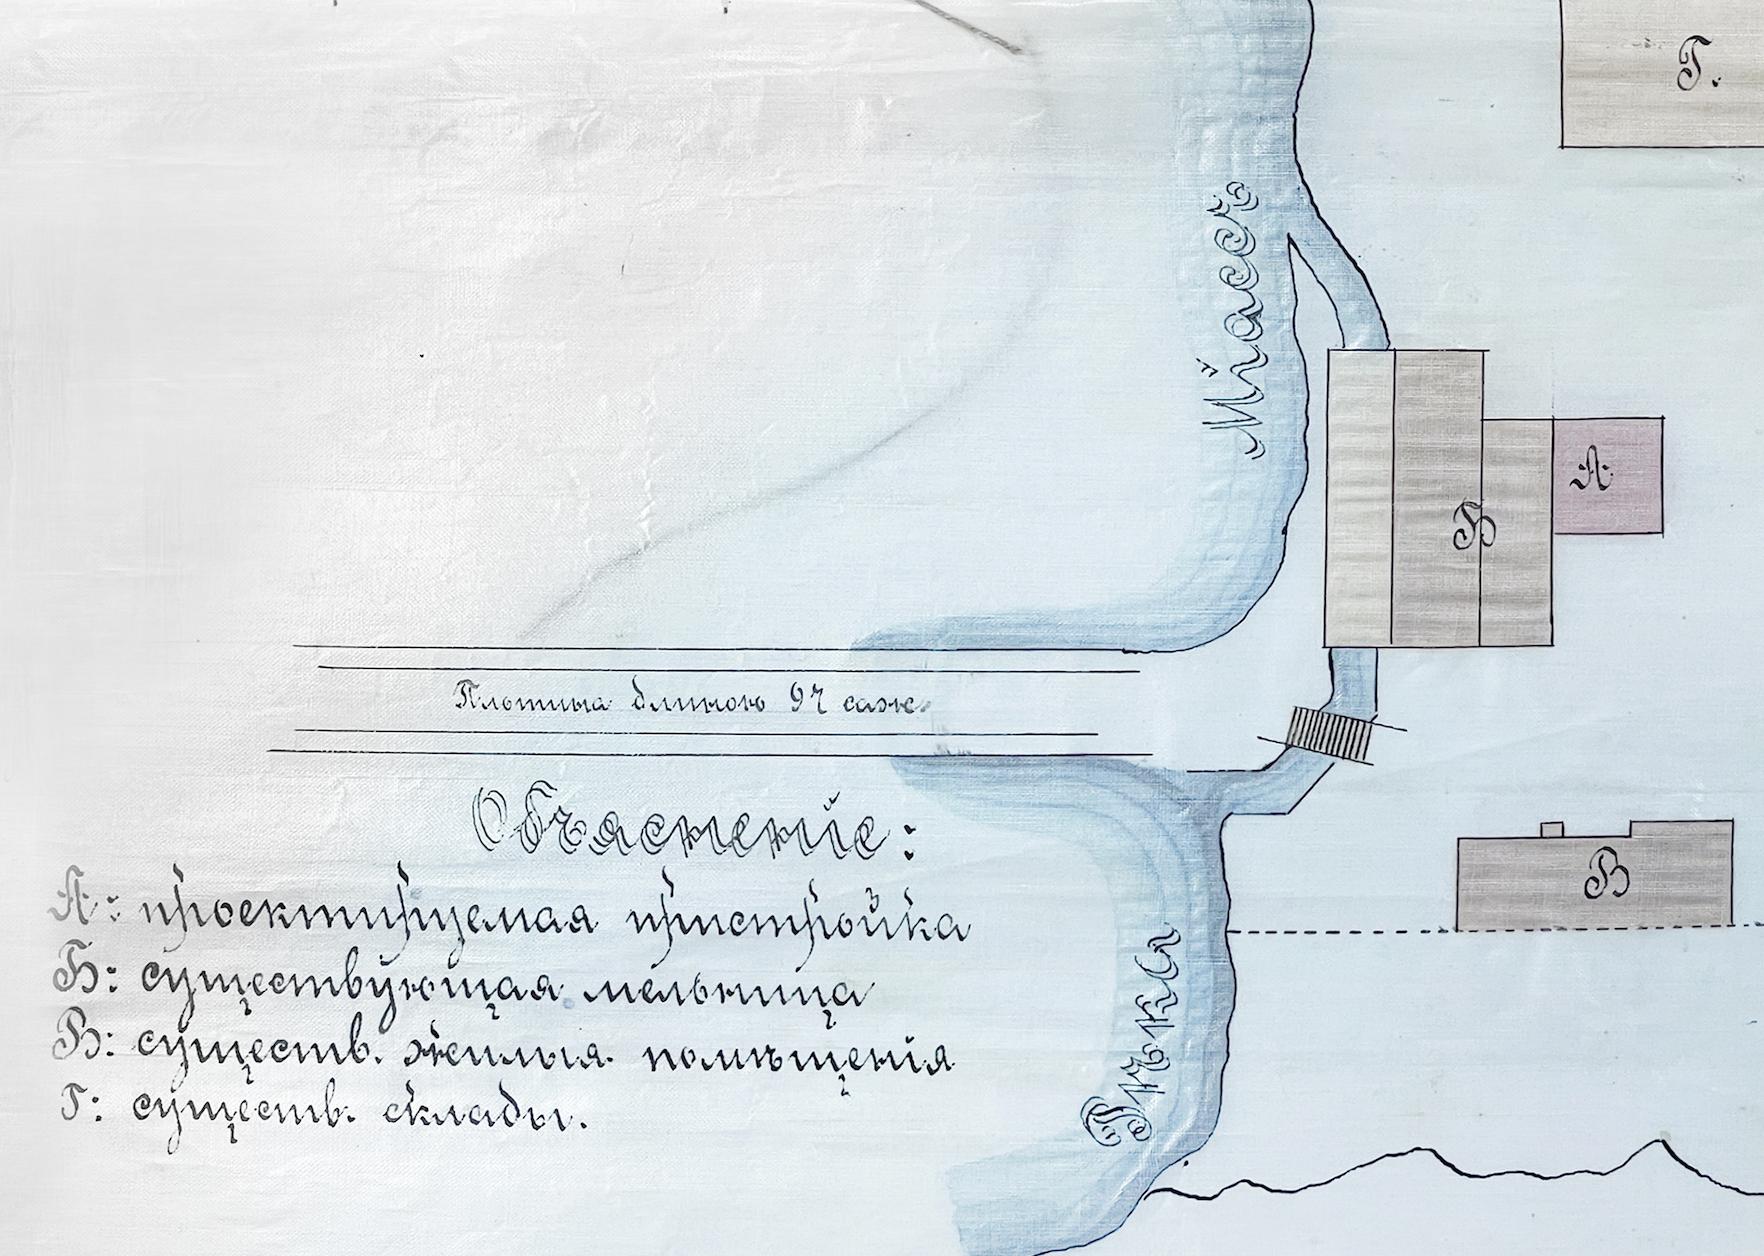 Г.
Міассъ
А
Б
Плотина длиною 97 саж.
В
Объясненіе:
А: проектируемая пристройка
Б: существующая мельница
В: существ. жилыя помѣщенія
Г: существ. склады.
Рѣка